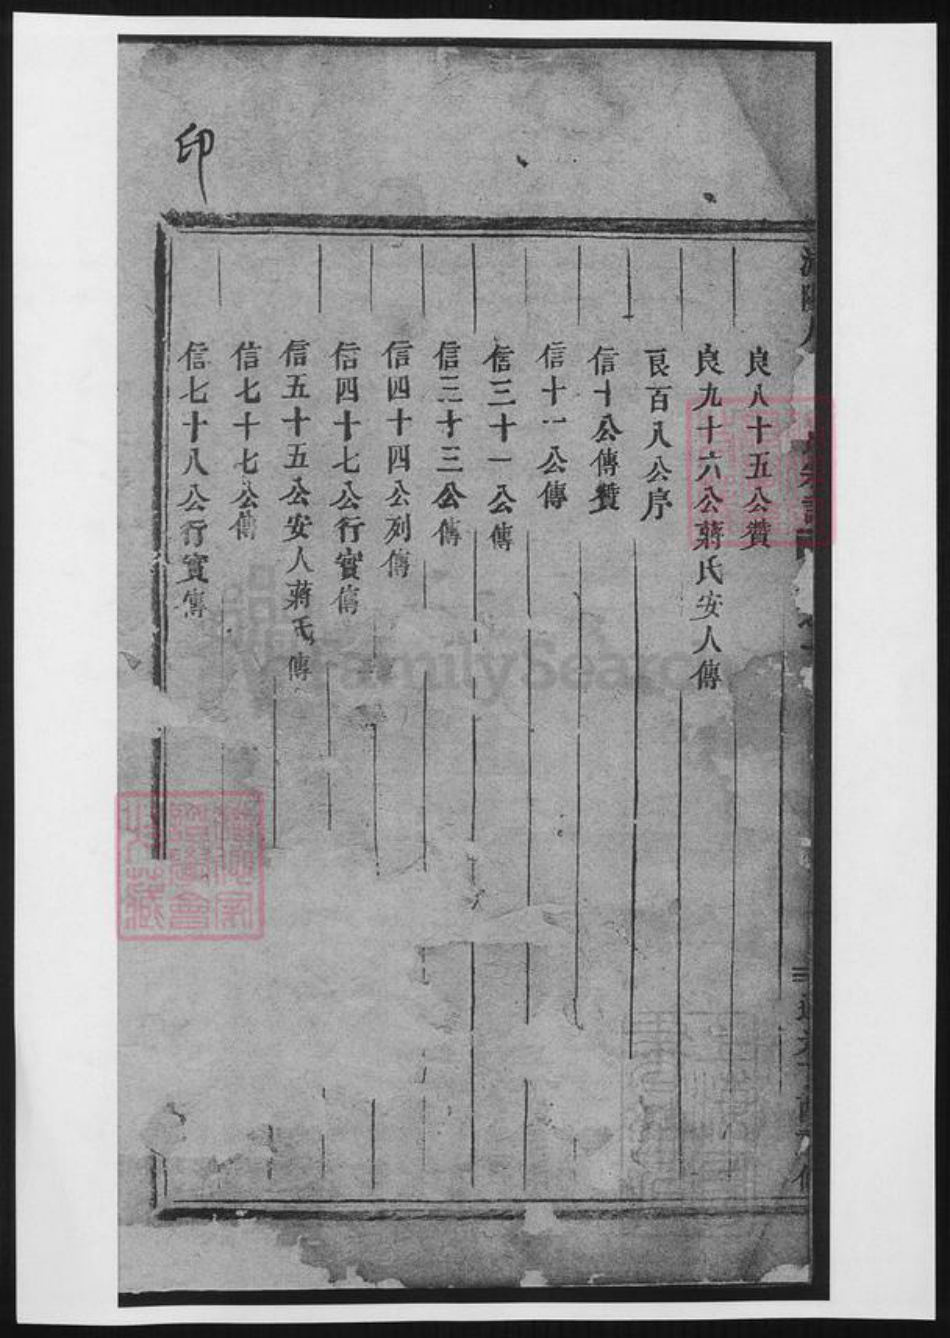 印
良八十五公贊
良九十六公蔣氏安人傳
良百八公序
信十公傳贊
信十一公傳
信三十一公傳
信三十三公傳
信四十四公列傳
信四十七公行實傳
信五十五公安人蔣氏傳
信七十七公傳
信七十八公行實傳
FamilySearch